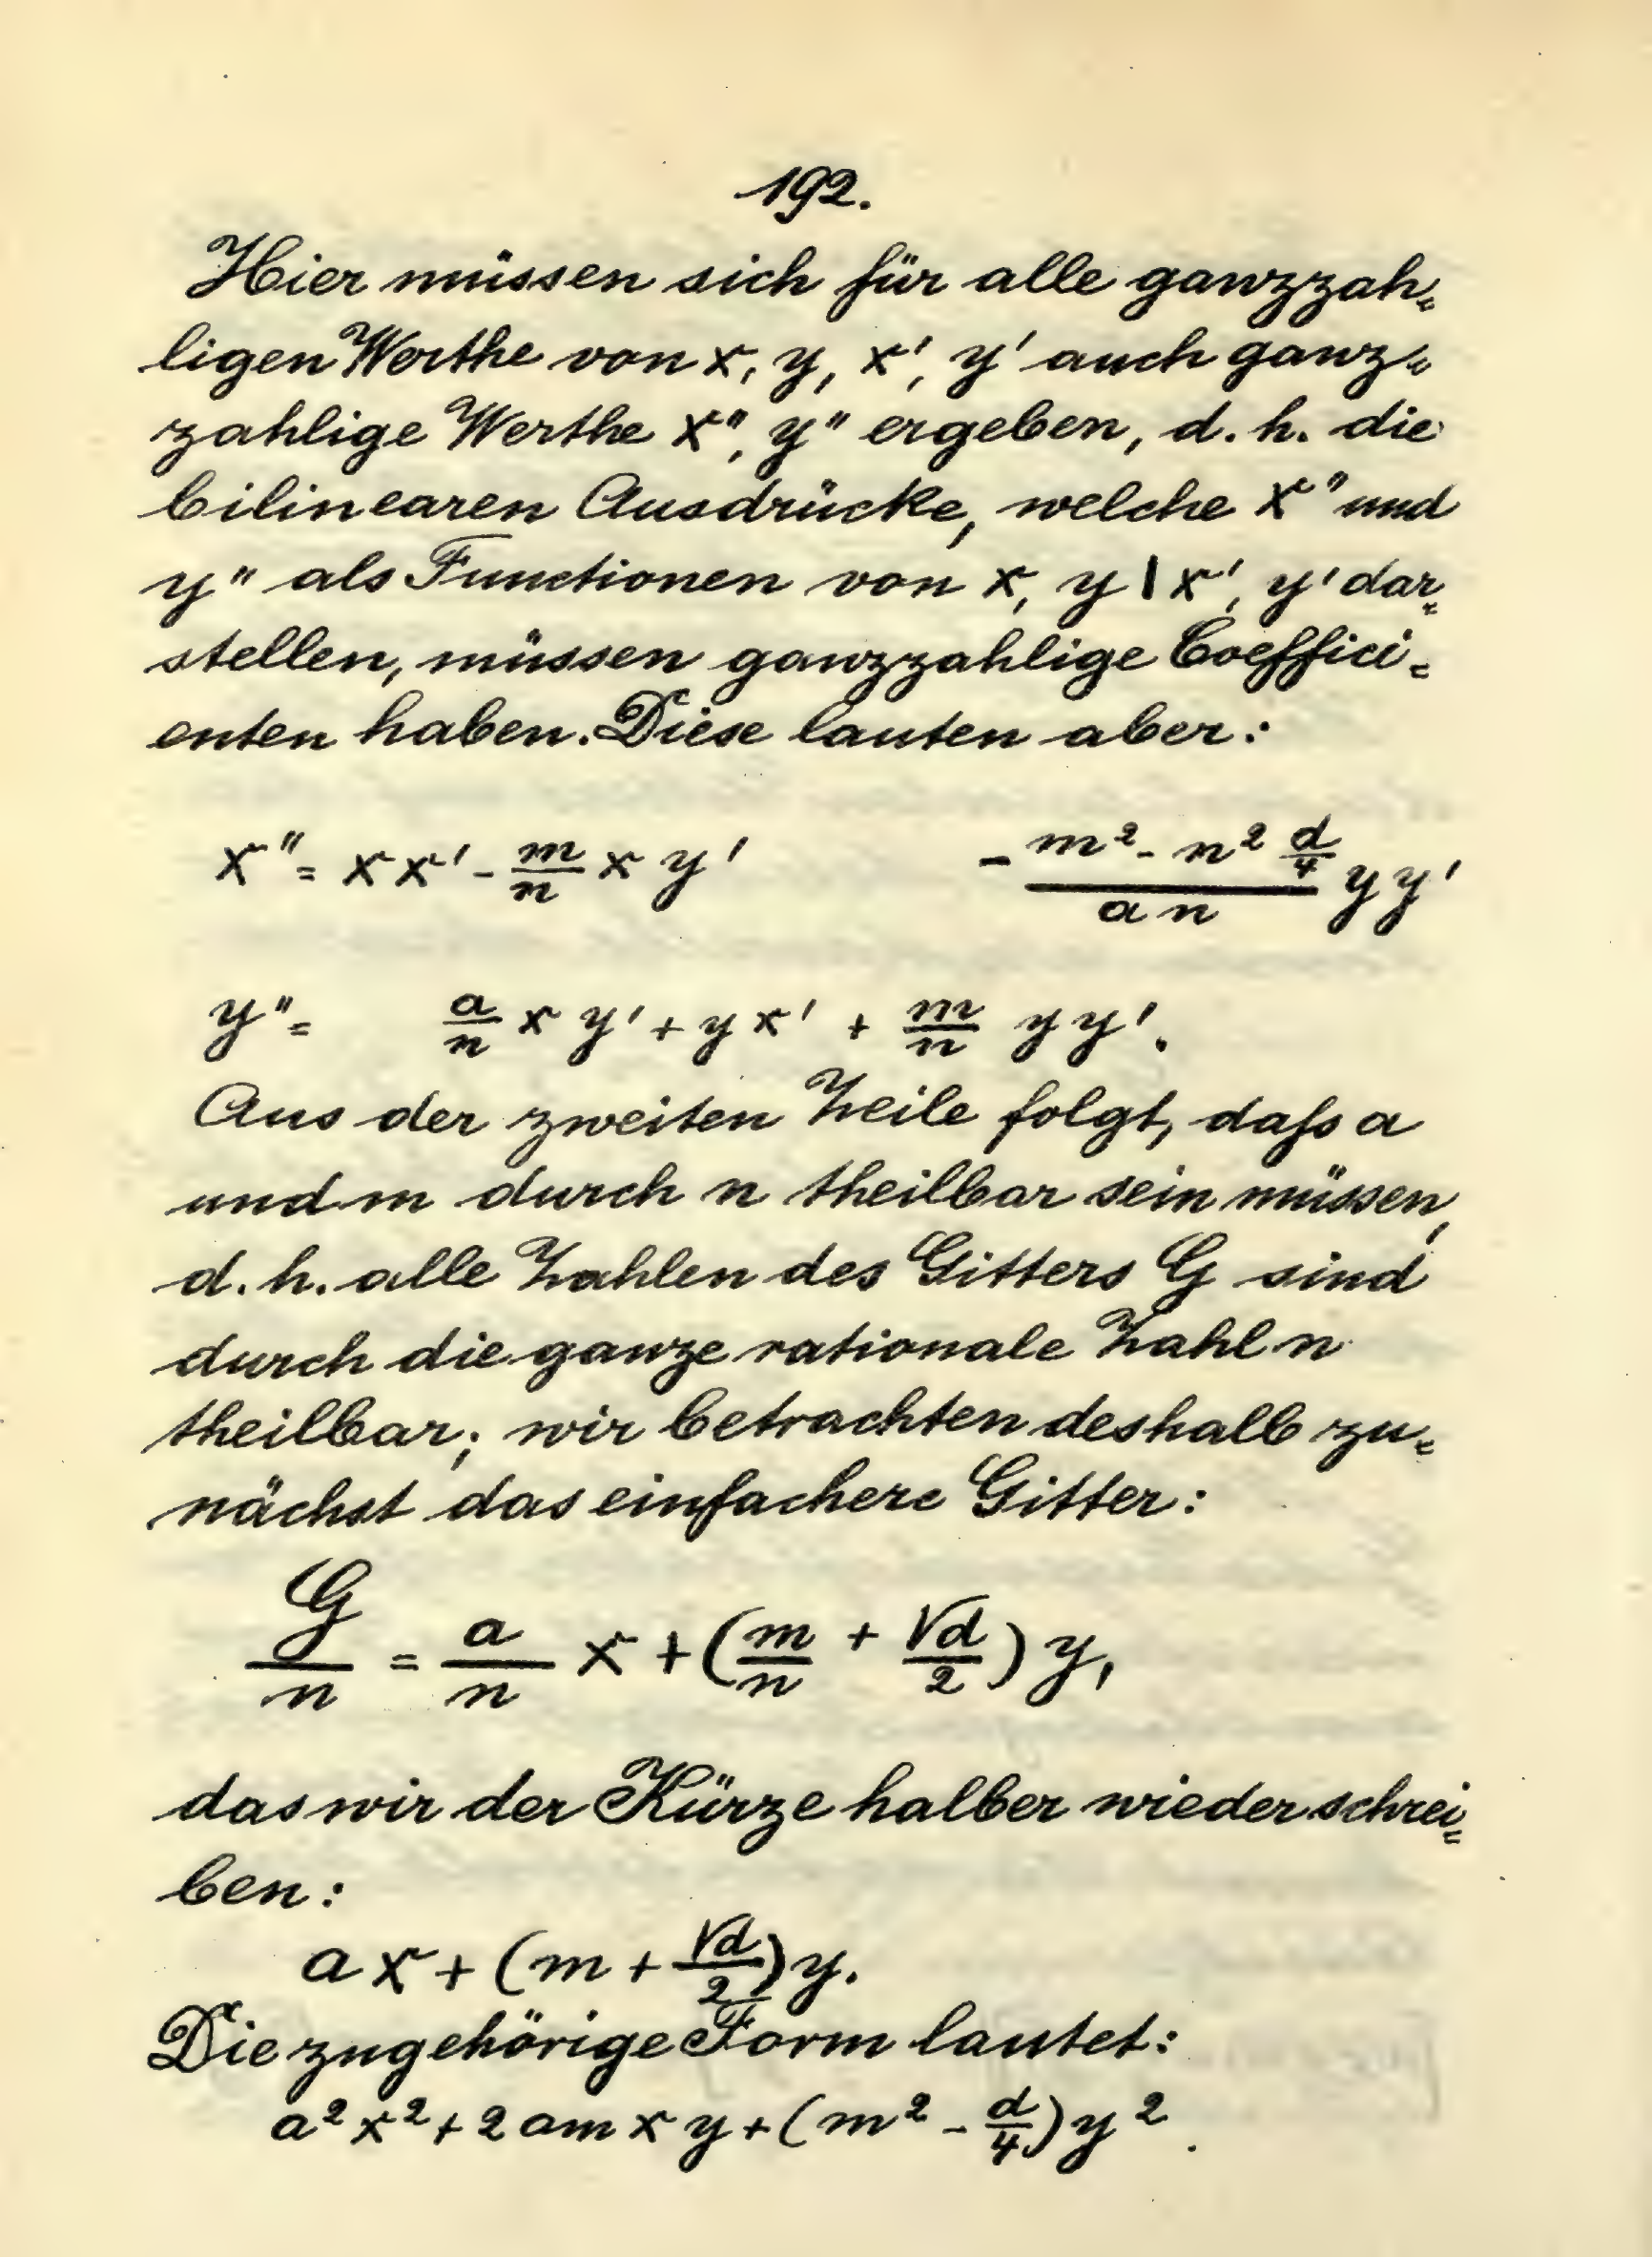 192.
Hier müssen sich für alle ganzzah=
ligen Werthe von x, y, x', y' auch ganz=
zahlige Werthe x", y" ergeben, d. h. die
bilinearen Ausdrücke, welche x" und
y" als Functionen von x, y | x', y' dar=
stellen, müssen ganzzahlige Coeffici=
enten haben. Diese lauten aber:
x" = x x' - \frac{m}{n} x y' - \frac{m^2 - n^2 \frac{d}{4}}{a n} y y'
y" = \frac{a}{n} x y' + y x' + \frac{m}{n} y y'.
Aus der zweiten Zeile folgt, daſs a
und m durch n theilbar sein müssen,
d. h. alle Zahlen des Gitters G sind
durch die ganze rationale Zahl n
theilbar; wir betrachten deshalb zu=
nächst das einfachere Gitter:
\frac{G}{n} = \frac{a}{n} x + (\frac{m}{n} + \frac{\sqrt{d}}{2}) y,
das wir der Kürze halber wieder schrei=
ben:
a x + (m + \frac{\sqrt{d}}{2}) y.
Die zugehörige Form lautet:
a^2 x^2 + 2 a m x y + (m^2 - \frac{d}{4}) y^2.